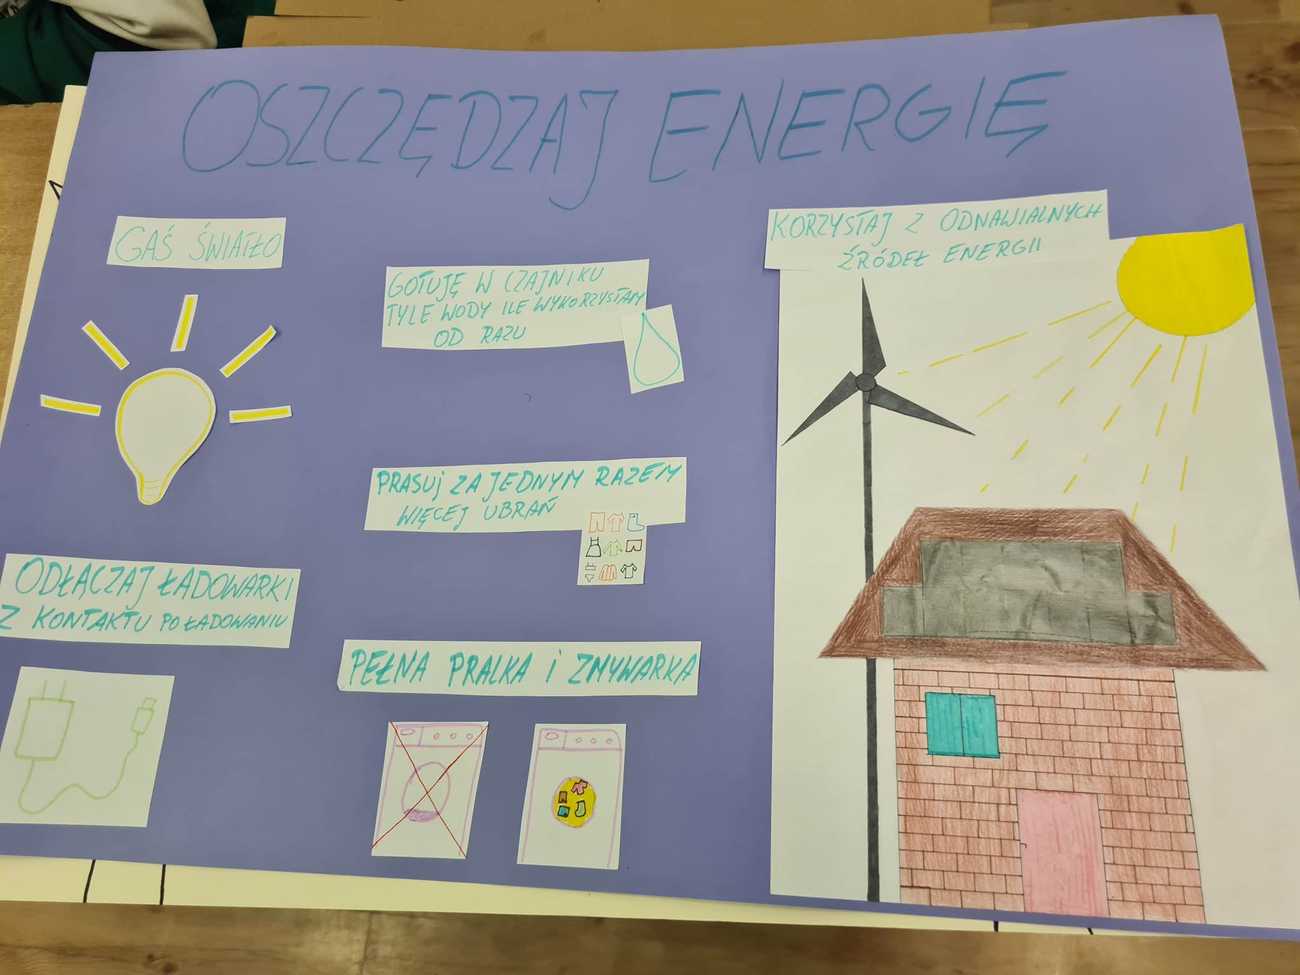 OSZCZĘDZAJ ENERGIĘ
GAŚ ŚWIATŁO
GOTUJĘ W CZAJNIKU
TYLE WODY ILE WYKORZYSTAM
OD RAZU
PRASUJ ZA JEDNYM RAZEM
WIĘCEJ UBRAŃ
ODŁĄCZAJ ŁADOWARKI
Z KONTAKTU PO ŁADOWANIU
PEŁNA PRALKA i ZMYWARKA
KORZYSTAJ Z ODNAWIALNYCH
ŹRÓDEŁ ENERGII